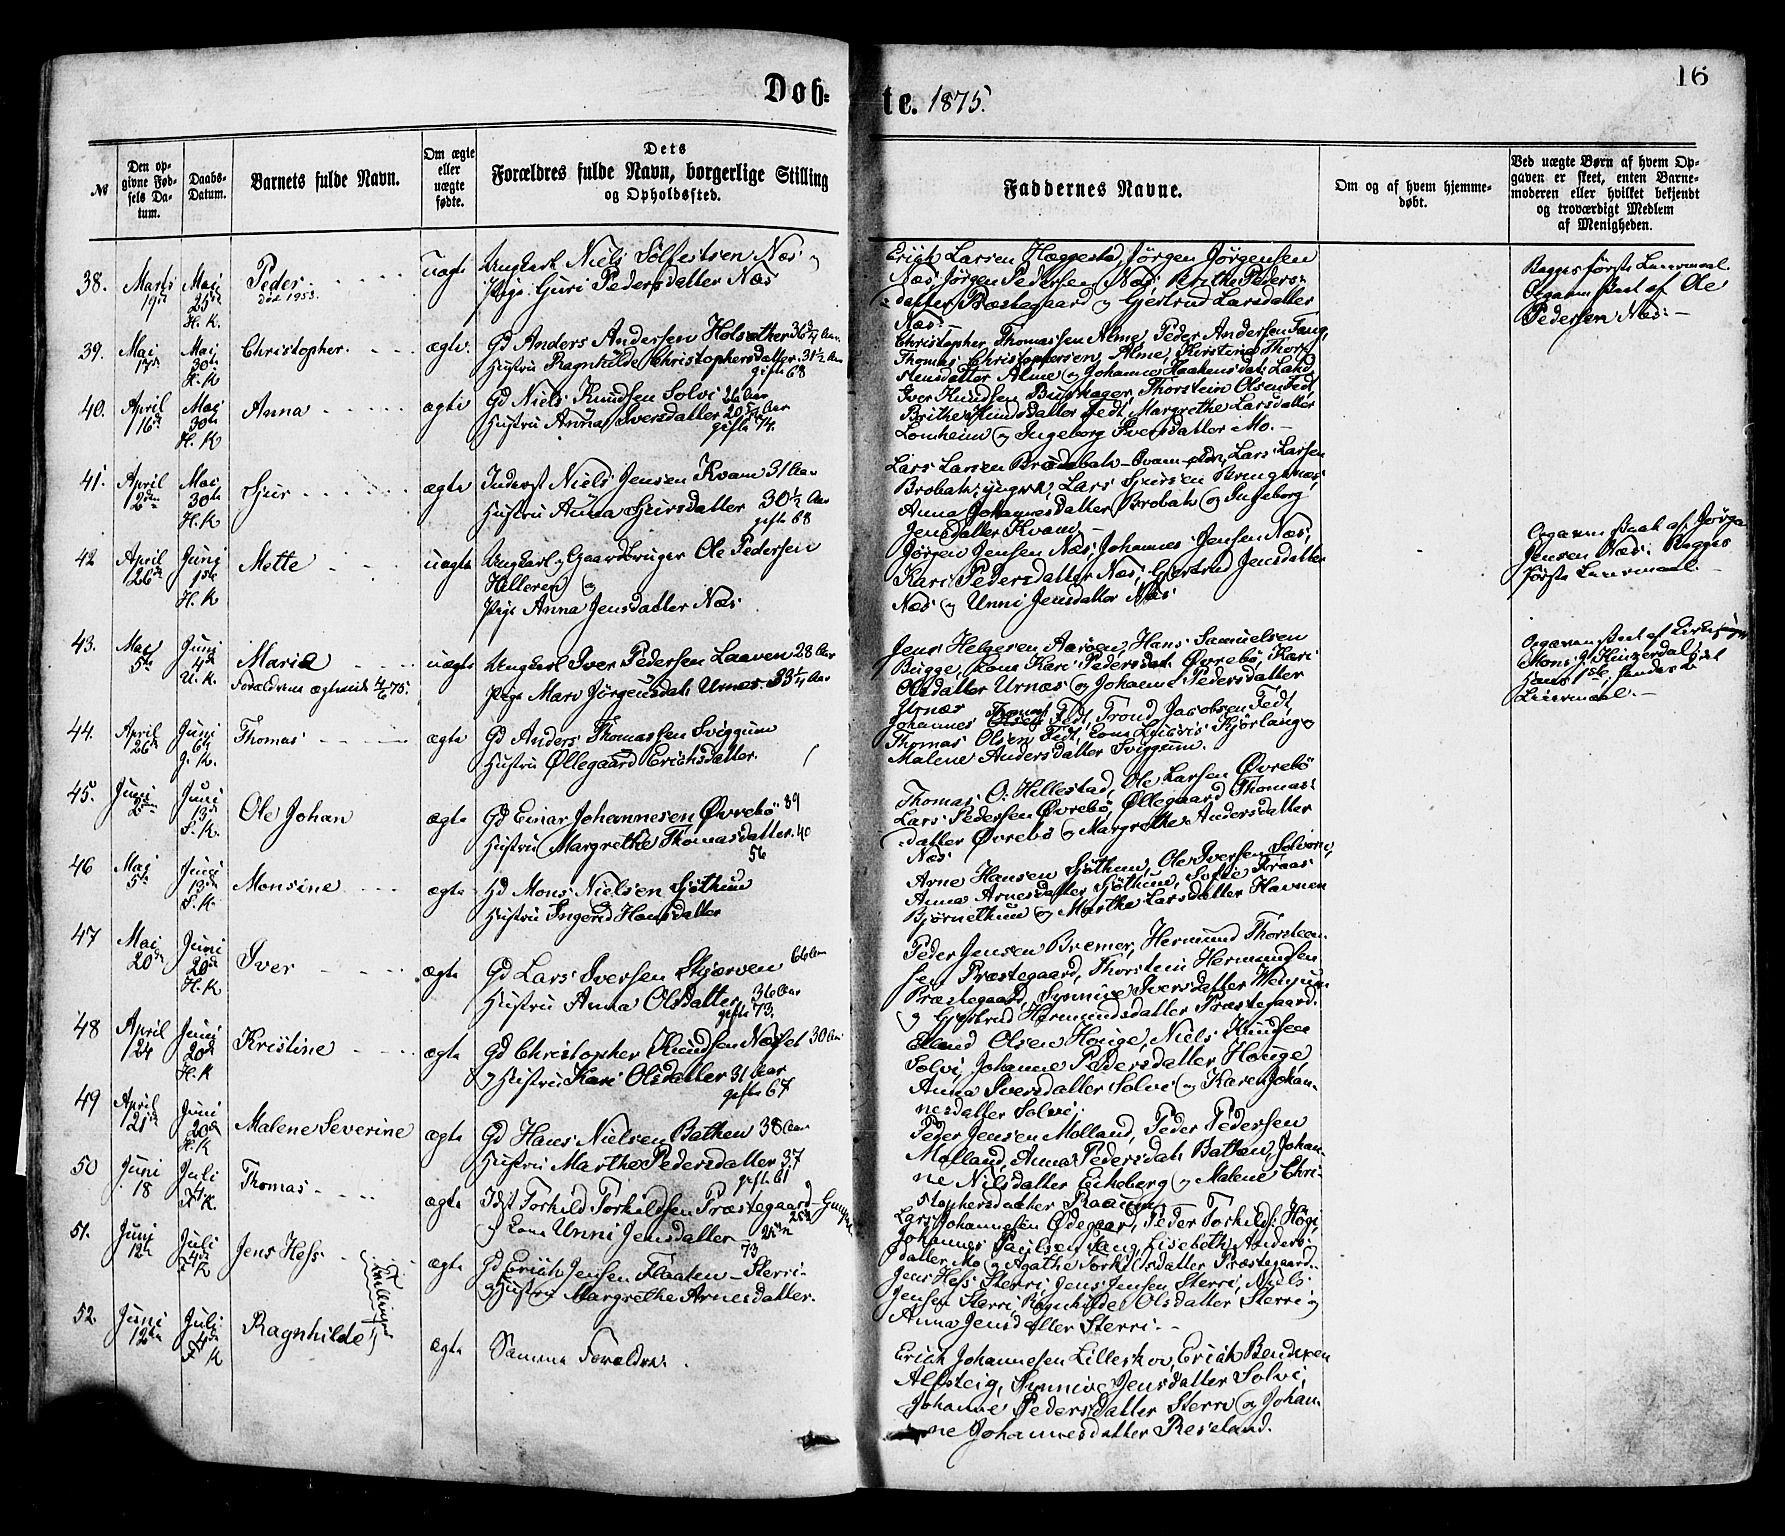 Döb-
te. 1875.
16
№
Den op-
givne Fød-
sels Da-
tum.
Daabs-
Datum.
Barnets fulde Navn.
Om ægte
eller
uægte
fødte.
Dets
Forældres fulde Navn, borgerlige Stilling
og Opholdssted.
Faddernes Navne.
Om og af hvem hjemme-
døbt.
Ved uægte Børn af hvem Op-
gaven er skeet, enten Barne-
moderen eller hvilket bekjendt
og troværdigt Medlem
af Menigheden.
38. Marts 19de
Mai 25de H. K.
Peder
død 1953.
uægte
Ungkarl Niels Solfestsen Næs og
Pige Guri Pedersdatter Næs
Erich Larsen Heggestad, Jørgen Jørgensen
Næs, Jørgen Pedersen Næs, Brithe Peders-
datter Præstegaard og Gjertrud Larsdatter
Næs.
Begges første Leiermaal
Opgaven skeet af Ole
Pedersen Næs.
39. Mai
Mai 30te H. K
Christopher
ægte
Gd Anders Andersen Holsether 36 Aar
Hustru Ragnhilde Christophersdatter 31½ Aar
gifte 68
Christopher Thomassen Alme, Peder Andersen Tang,
Thomas Christophersen Alme, Kirstine Thor-
stensdatter Alme og Johanne Haakensdat. Land
40. April 16de
Mai 30te H. K
Anna
ægte
Gd Niels Knudsen Solvi 26 Aar
Hustru Anna Iversdatter 20 Aar
gifte 74.
Iver Knudsen Buskager, Thorstein Olsen Fedt,
Brithe Knudsdatter Fedt, Margrethe Larsdatter
Lomheim og Ingeborg Iversdatter Mo.
41. April 2den
Mai 30te H. K
Sjur
ægte
Inderst Niels Jensen Kvam 31 Aar
Hustru Anna Sjursdatter 30½ Aar
gifte 68
Lars Larsen, Lars Larsen
Brobak, yngre, Lars Sjursen Bringenæs,
Anna Johannesdatter Brobak og Ingeborg
Jensdatter Kvam
42 April 26de
Juni 1ste H. K
Mette
uægte
Ungkarl og Gaardbruger Ole Pedersen
Hilleren og
Pige Anna Jensdatter Næs
Jørgen Jensen Næs, Johannes Jensen Næs,
Kari Pedersdatter Næs, Gjertrud Jensdatter
Næs og Unni Jensdatter Næs
Opgaven skeet af Jørgen
Jensen Næs. Begges
første Leiermaal.
43. Mai 5te
Juni 4de U. K.
Maria
Forældrene ægteviede 4/6 75.
uægte
Ungkarl Iver Pedersen Laaven 28 Aar
Pige Mari Jørgensdat. Urnæs 33¼ Aar
Jens Helgesen Aarøen, Hans Samuelsen
Bugge, Kona Kari Pedersdat. Øvrebø, Kari
Olsdatter Urnæs og Johanne Pedersdatter
Urnæs
Opgaven skeet af Kirkesanger
Mons J. Hinzerdal
Hans 1ste, hendes 2det
Leiermaal.
44. April 26de
Juni 6te J. K.
Thomas
ægte
Gd Anders Thomassen Sviggum
Hustru Øllegaard Erichsdatter.
Johannes Thomas Fedt, Trond Jacobsen Fedt,
Thomas Olsen Fedt, Kjørlaug og
Malene Andersdatter Sviggum.
45. Juni 2den
Juni 13de S. K.
Ole Johan
ægte
Gd Einar Johannesen Øvrebø 39
Hustru Margrethe Thomasdatter 40
56
Thomas O. Hillestad, Ole Larsen Øvrebø
Lars Pedersen Øvrebø, Øllegaard Thomas-
datter Øvrebø og Margrethe Andersdatter
Næs
46 Mai 5te
Juni 13de S. K
Monsine
ægte
Gd Mons Nielsen Sjøthun
Hustru Ingerid Hansdatter
Arne Hansen Sjøthun, Ole Iversen Solvorn,
Anna Arnesdatter Sjøthun, Sofie Fraas
Bjørnethun og Marthe Larsdatter Havnen
47 Mai 20de
Juni 20de H. K
Iver
ægte
Gd Lars Iversen Skjærven 66 Aar
Hustru Anna Olsdatter 36 Aar
gifte 73.
Peder Jensen Bremer, Hermund Thorsteen-
sen Præstegaard, Thorstein Hermundsen
Præstegaard, Synnive Iversdatter
og Gjertrud Hermundsdatter Præstegaard.
48 April 24
Juni 20de H. K
Kristine
ægte
Gd Christopher Knudsen Næset 30 Aar
og Hustru Kari Olsdatter 31 Aar
gifte 67
Erland Olsen Houge, Niels Knudsen
Solvi, Johanne Pedersdatter Houge,
Anna Iversdatter Solvi og Karen Johan-
nesdatter Solvi.
49 April 21de
Juni 20de H. K
Malene Severine
ægte
Gd Hans Nielsen Bathen 38 Aar
Hustru Marthe Pedersdatter 37
gifte 61
Peder Jensen Molland, Peder Pedersen
Molland, Anna Pedersdat. Bathen, Johan-
ne Nilsdatter Eikeberg og Malene Chri-
stophersdatter Raaum
50 Juni 18
Juli 4 F. K.
Thomas
ægte
Idst Torkild Torkildsen Præstegaard
og Kona Unni Jensdatter
73
Lars Johannesen Ødegaar, Peder Torkilds. Høgi,
Johannes Paulsen Tang, Lisebeth Anders-
datter Mo og Agathe Torkildsdatter Præstegaard.
51. Juni 12te
Juli 4de F. K
Jens Hess
Tvillinger
ægte
Gd Erich Jensen Flaaten - Sterri
Hustru Margrethe Arnesdatter.
Jens Hess Sterri, Jens Jensen Sterri, Niels
Jensen Sterri, Ragnhilde Olsdatter Sterri og
Anna Jensdatter Sterri.
52. Juni 12te
Juli 4de F. K
Ragnhilde
ægte
Samme Forældre.
Erich Johannesen Lilleskov, Erich Bendixen
Alfsteig, Synnive Jensdatter Solvi,
Johanne Pedersdatter Sterri og Johan-
ne Johannesdatter Reseland.